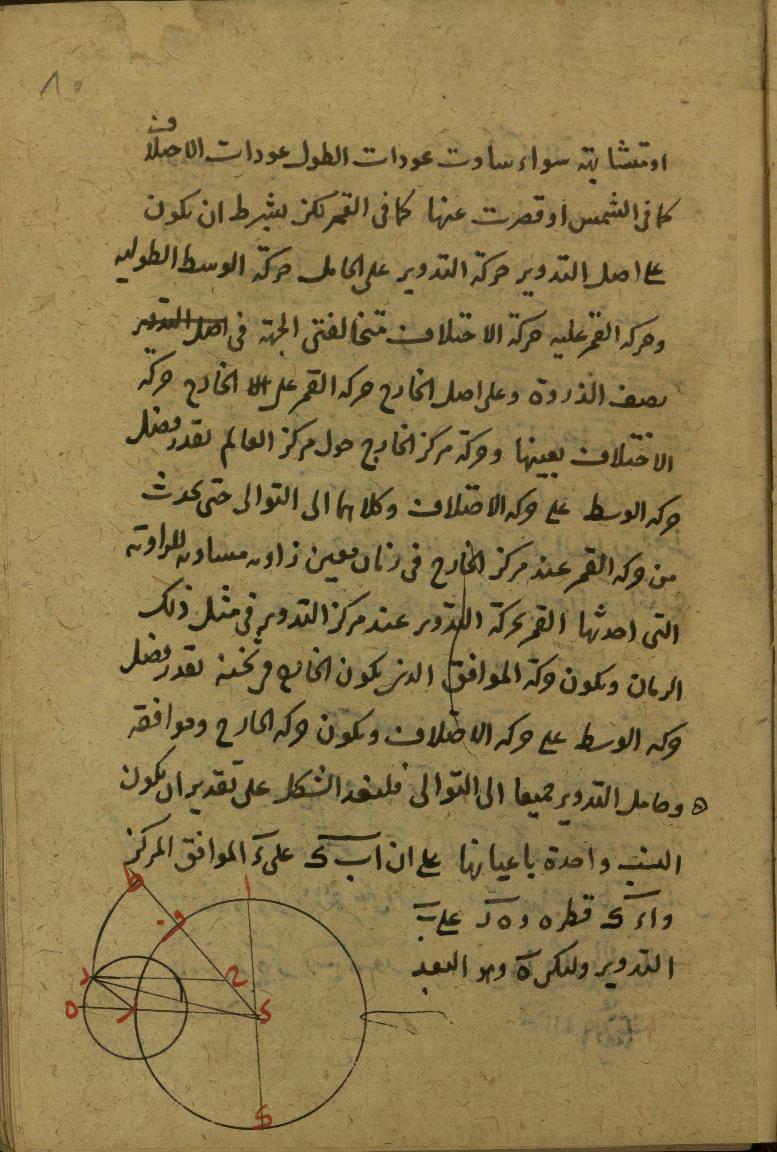 ٨٥
او متشابهة سواء ساوت عودات الطول عودات الاختلاف
كما فى الشمس او قصرت عنها كما فى القمر لكن بشرط ان يكون
على اصل التدوير حركة التدوير على الحامل حركة الوسط الطولية
وحركه القمر عليه حركة الاختلاف متخالفتى الجهة فى اصل التدوير
نصف الذروة وعلى اصل الخارج حركه القمر على الخارج حركة
الاختلاف بعينها وحركة مركز الخارج حول مركز العالم بقدر فضل
حركه الوسط على حركه الاختلاف وكلاهما الى التوالى حتى يحدث
من حركه القمر عند مركز الخارج فى زمان معين زاويه مساويه للزاوية
التى احدثها القمر بحركة التدوير عند مركز التدوير فى مثل ذلك
الزمان ويكون حركة الموافق الذى يكون الخارج فى ثخنه بقدر فضل
حركه الوسط على حركه الاختلاف ويكون حركه الخارج وموافقه
وحامل التدوير جميعا الى التوالى فلنعد الشكل على تقدير ان يكون
النسب واحدة باعيانها على ان ا ب ى على ء الموافق المركز
وا ء ى قطره و ه د على ب
التدوير وليكن ه وهو البعد
ا
ط
ح
د
ه
ب
ى